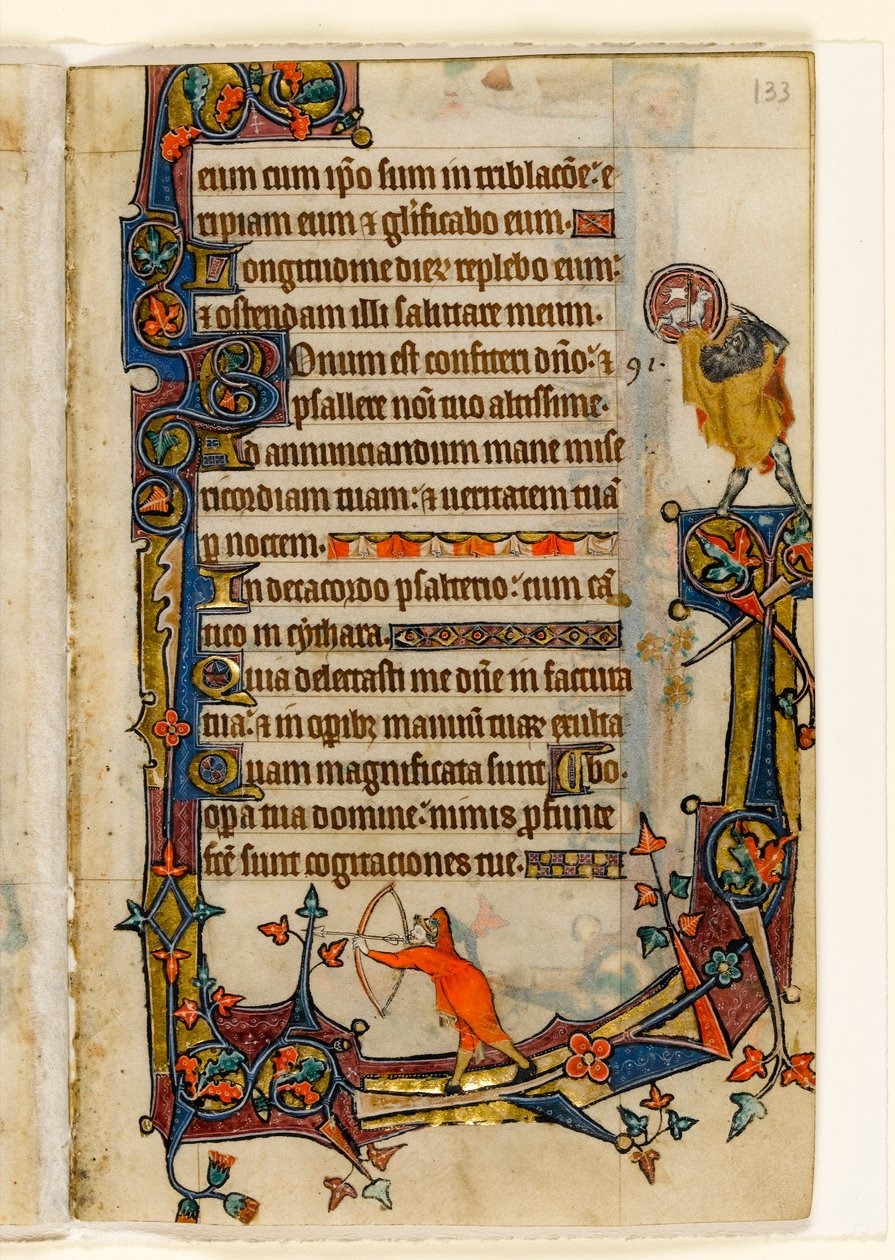 133
eum cum ip̄o sum in tribulacōe: e
ripiam eum ⁊ gl'ificabo eum.
Longitudine dieꝝ replebo eum:
⁊ ostendam illi salutare meum.
Bonum est confiteri dño: ⁊
91.
psallere nōi tuo altissime.
Ad annunciandum mane mise
ricordiam tuam: ⁊ ueritatem tuā
ꝑ noctem.
In decacordo psalterio: cum cā
tico in cythara.
Quia delectasti me dñe in factura
tua: ⁊ in oꝑibꝫ manuū tuaꝝ exulta
Quam magnificata sunt bo.
oꝑa tua domine: nimis ꝓfunde
fcē sunt cogitaciones tue.